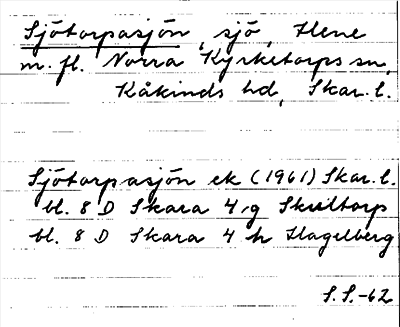 Sjötorpasjön, sjö, Hene
m. fl. Norra Kyrketorps sn,
Kåkinds hd, Skar. l.
Sjötorpasjön ek (1961) Skar. l.
bl. 8 D Skara 4 g Skultorp
bl. 8 D Skara 4 h Hagelberg
S. S. -62